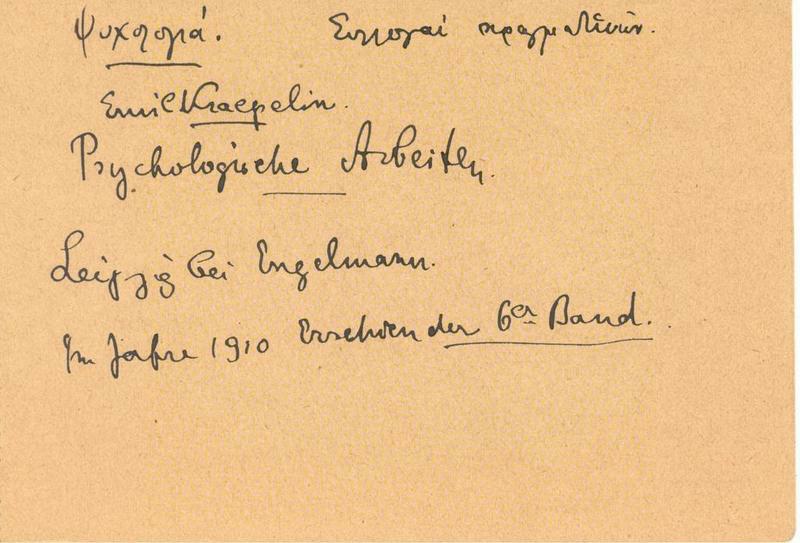 Ψυχολογία. Συλλογαί πραγματειών.
Emil Kraepelin.
Psychologische Arbeiten.
Leipzig bei Engelmann.
Im Jahre 1910 Erschien der 6er Band.